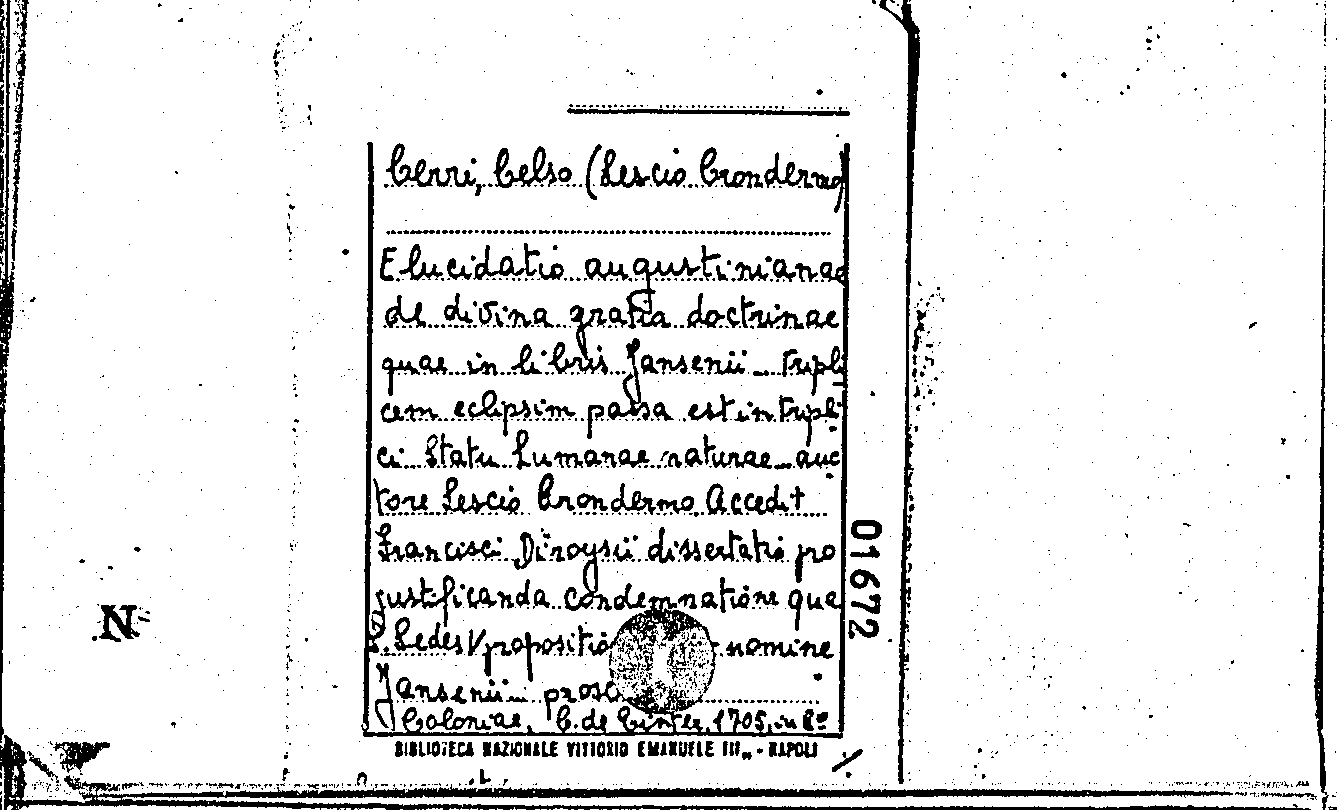 Cerri, Celso (Lescio Crondermo)
Elucidatio augustinianae
de divina gratia doctrinae
quae in libris Jansenii... tripli
cem eclipsim passa est in tripli
ci Statu humanae naturae... auc
tore Lescio Crondermo Accedit
Francisci Diroysii dissertatio pro
justificanda condemnatione qua
S. Sedes V propositio nomine
Jansenii... prosc
Coloniae, C. de 1705, in 8º
BIBLIOTECA NAZIONALE VITTORIO EMANUELE III„ - NAPOLI
01672
N